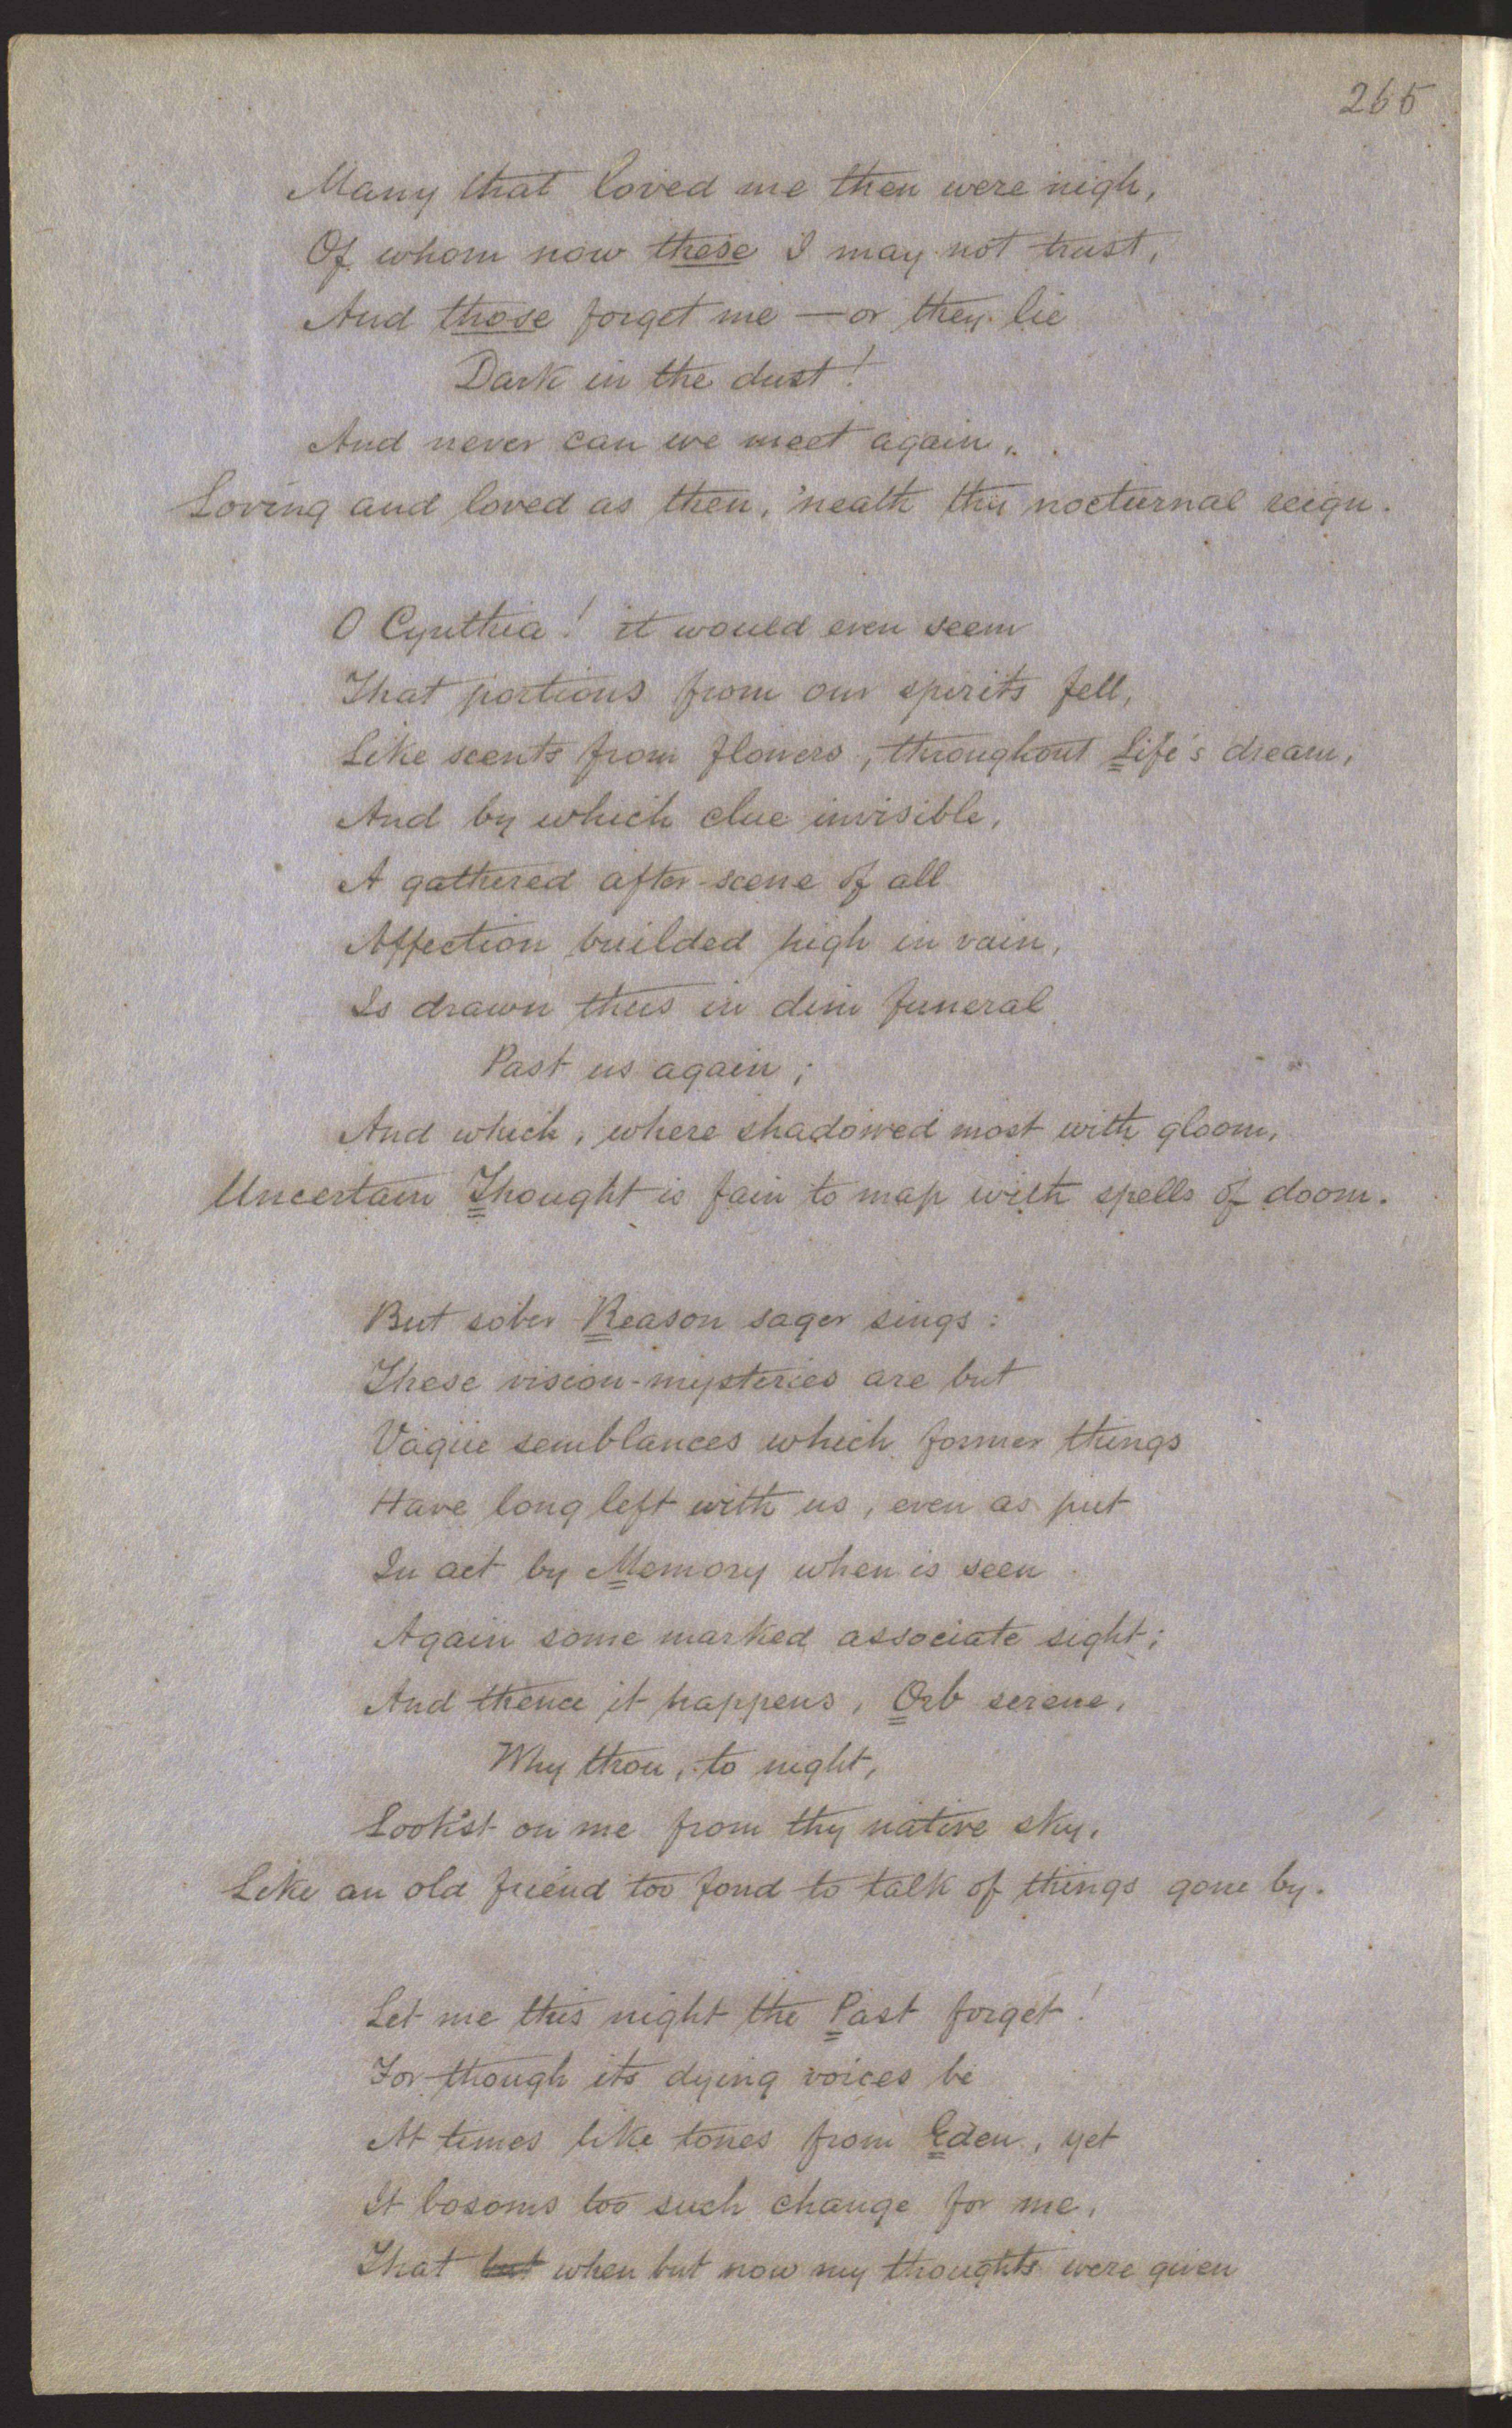 265
Many that loved me then were nigh,
Of whom now these I may not trust,
And those forget me — or they lie
Dark in the dust!
And never can we meet again,
Loving and loved as then, 'neath thy nocturnal reign.
O Cynthia! it would even seem
That portions from our spirits fell,
Like scents from flowers, throughout Life's dream,
And by which clue invisible,
A gathered after-scene of all
Affection builded high in vain,
Is drawn thus in dim funeral
Past us again;
And which, where shadowed most with gloom,
Uncertain Thought is fain to map with spells of doom.
But sober Reason sager sings:
These vision-mysteries are but
Vague semblances which former things
Have long left with us, even as put
In act by Memory when is seen
Again some marked associate sight;
And thence it happens, Orb serene,
Why thou, to night,
Look'st on me from thy native sky,
Like an old friend too fond to talk of things gone by.
Let me this night the Past forget!
For though its dying voices be
At times like tones from Eden, yet
It bosoms too such change for me,
That but when but now my thoughts were given